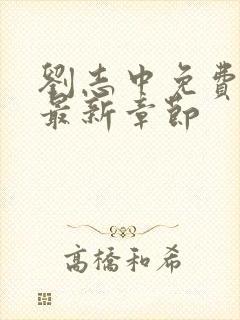 劉志中免費
最新章節
高橋和希